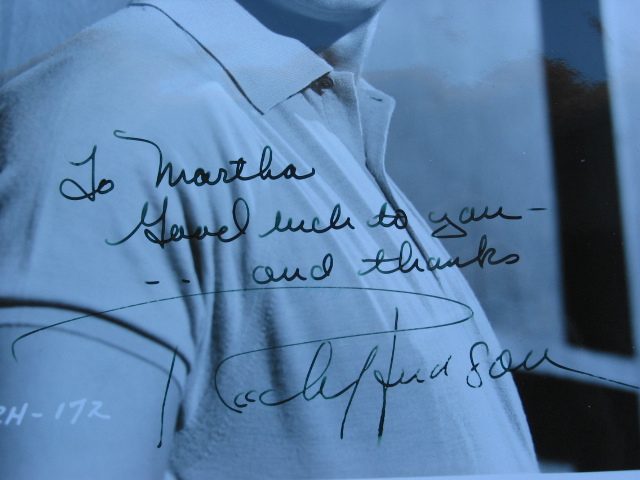 To Martha
Good luck to you -
-- and thanks
Rock Hudson
RH-172